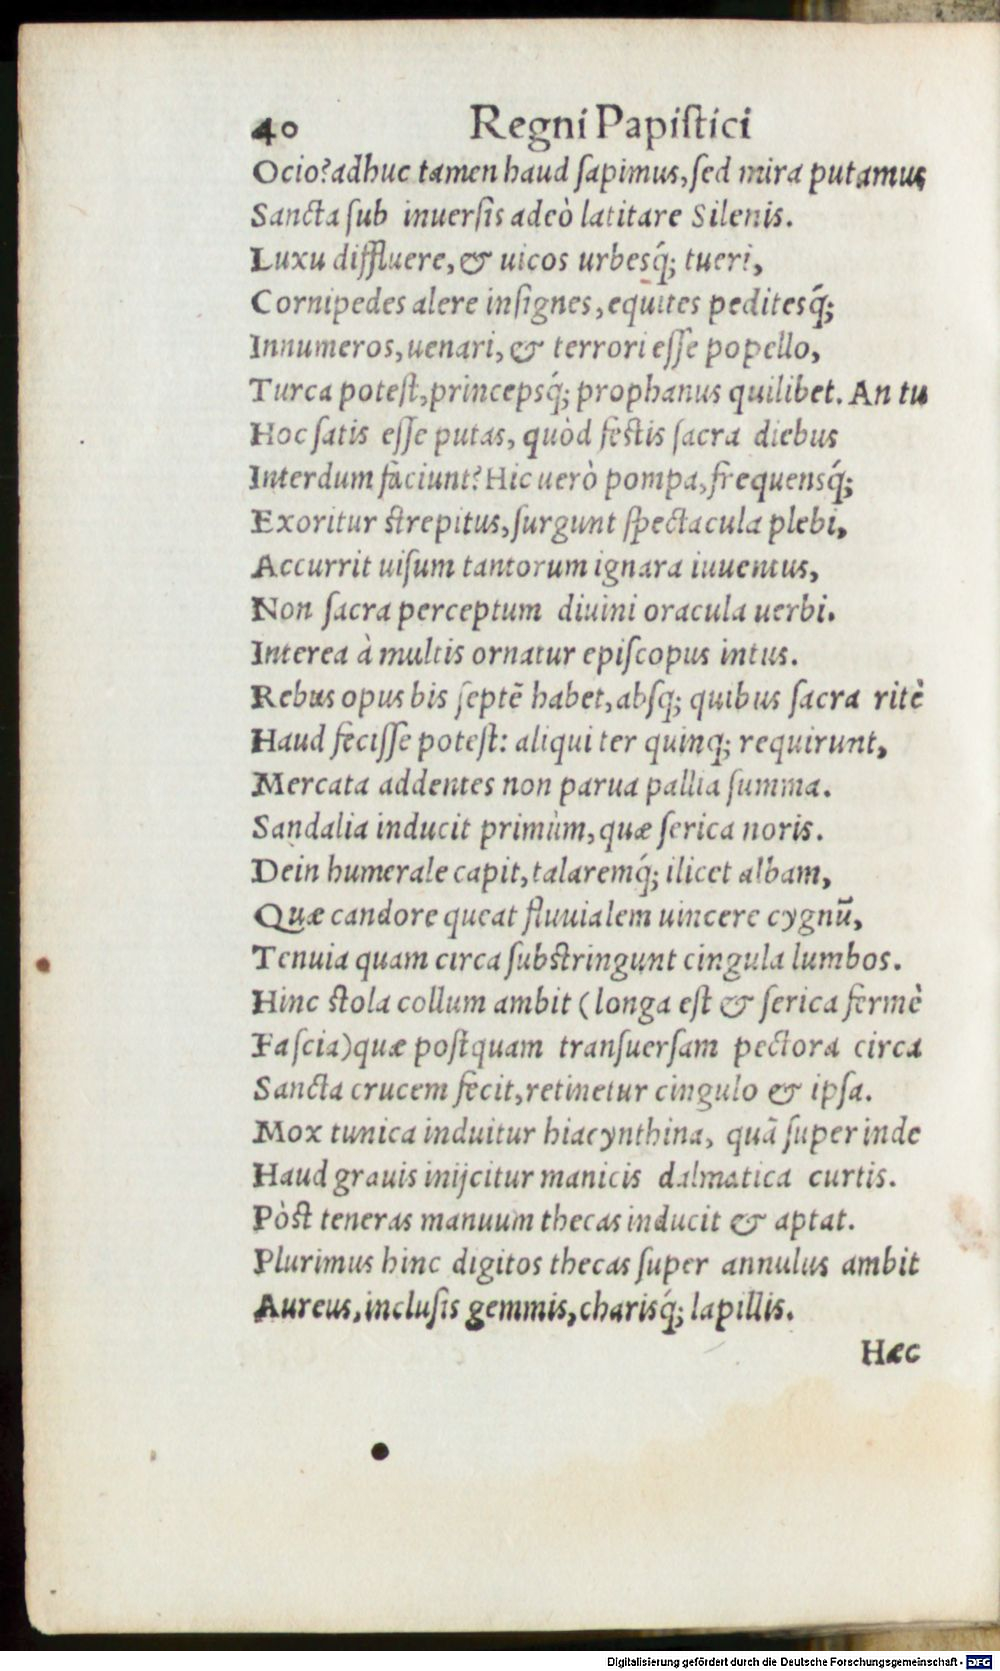 40 Regni Papiſtici
Ocio? adhuc tamen haud ſapimus, ſed mira putamus
Sancta ſub inuerſis adeò latitare Silenis.
Luxu diffluere, & uicos urbesq́; tueri,
Cornipedes alere inſignes, equites peditesq́;
Innumeros, uenari, & terrori eſſe popello,
Turca poteſt, princepsq́; prophanus quilibet. An tu
Hoc ſatis eſſe putas, quòd feſtis ſacra diebus
Interdum faciunt? Hic uerò pompa, frequensq́;
Exoritur ſtrepitus, ſurgunt ſpectacula plebi,
Accurrit uiſum tantorum ignara iuuentus,
Non ſacra perceptum diuini oracula uerbi.
Interea à multis ornatur epiſcopus intus.
Rebus opus bis ſeptẽ habet, absq; quibus ſacra ritè
Haud feciſſe poteſt: aliqui ter quinq; requirunt,
Mercata addentes non parua pallia ſumma.
Sandalia inducit primùm, quæ ſerica noris.
Dein humerale capit, talaremq́; ilicet albam,
Quæ candore queat fluuialem uincere cygnũ,
Tenuia quam circa ſubſtringunt cingula lumbos.
Hinc ſtola collum ambit (longa eſt & ſerica fermè
Faſcia) quæ poſtquam tranſuerſam pectora circa
Sancta crucem fecit, retinetur cingulo & ipſa.
Mox tunica induitur hiacynthina, quã ſuper inde
Haud grauis inijcitur manicis dalmatica curtis.
Pòſt teneras manuum thecas inducit & aptat.
Plurimus hinc digitos thecas ſuper annulus ambit
Aureus, incluſis gemmis, charisq́; lapillis.
Hæc
Digitalisierung gefördert durch die Deutsche Forschungsgemeinschaft - DFG